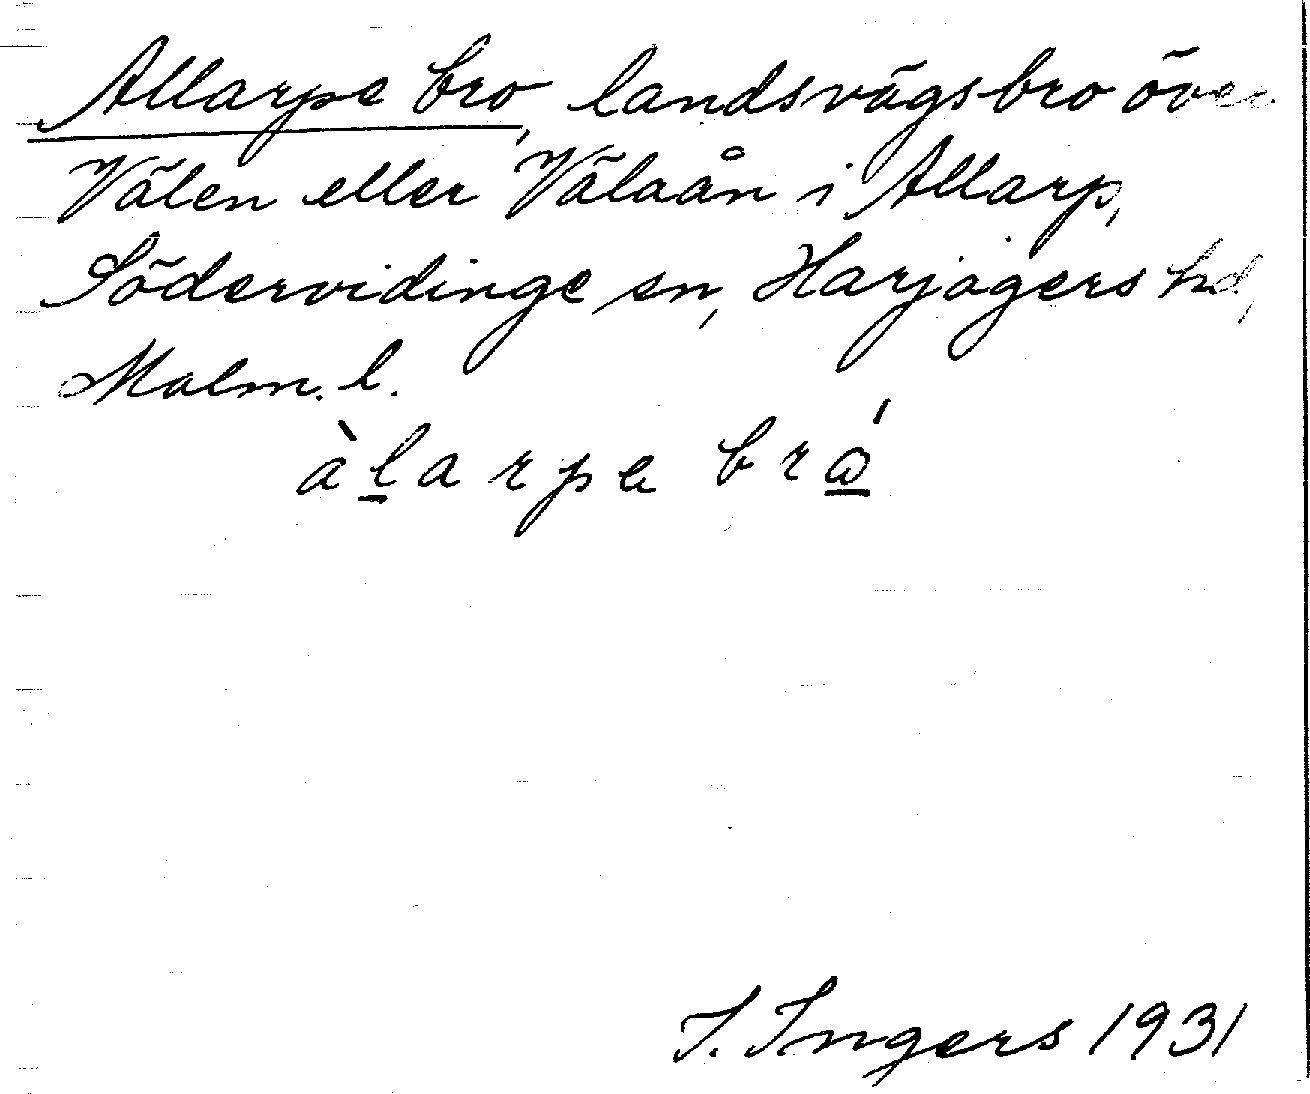 Allarpe bro, landsvägsbro över
Välen eller Välaån i Allarp,
Södervidinge sn, Harjagers hd,
Malm. l.
àlarpa brǻ
I. Ingers 1931